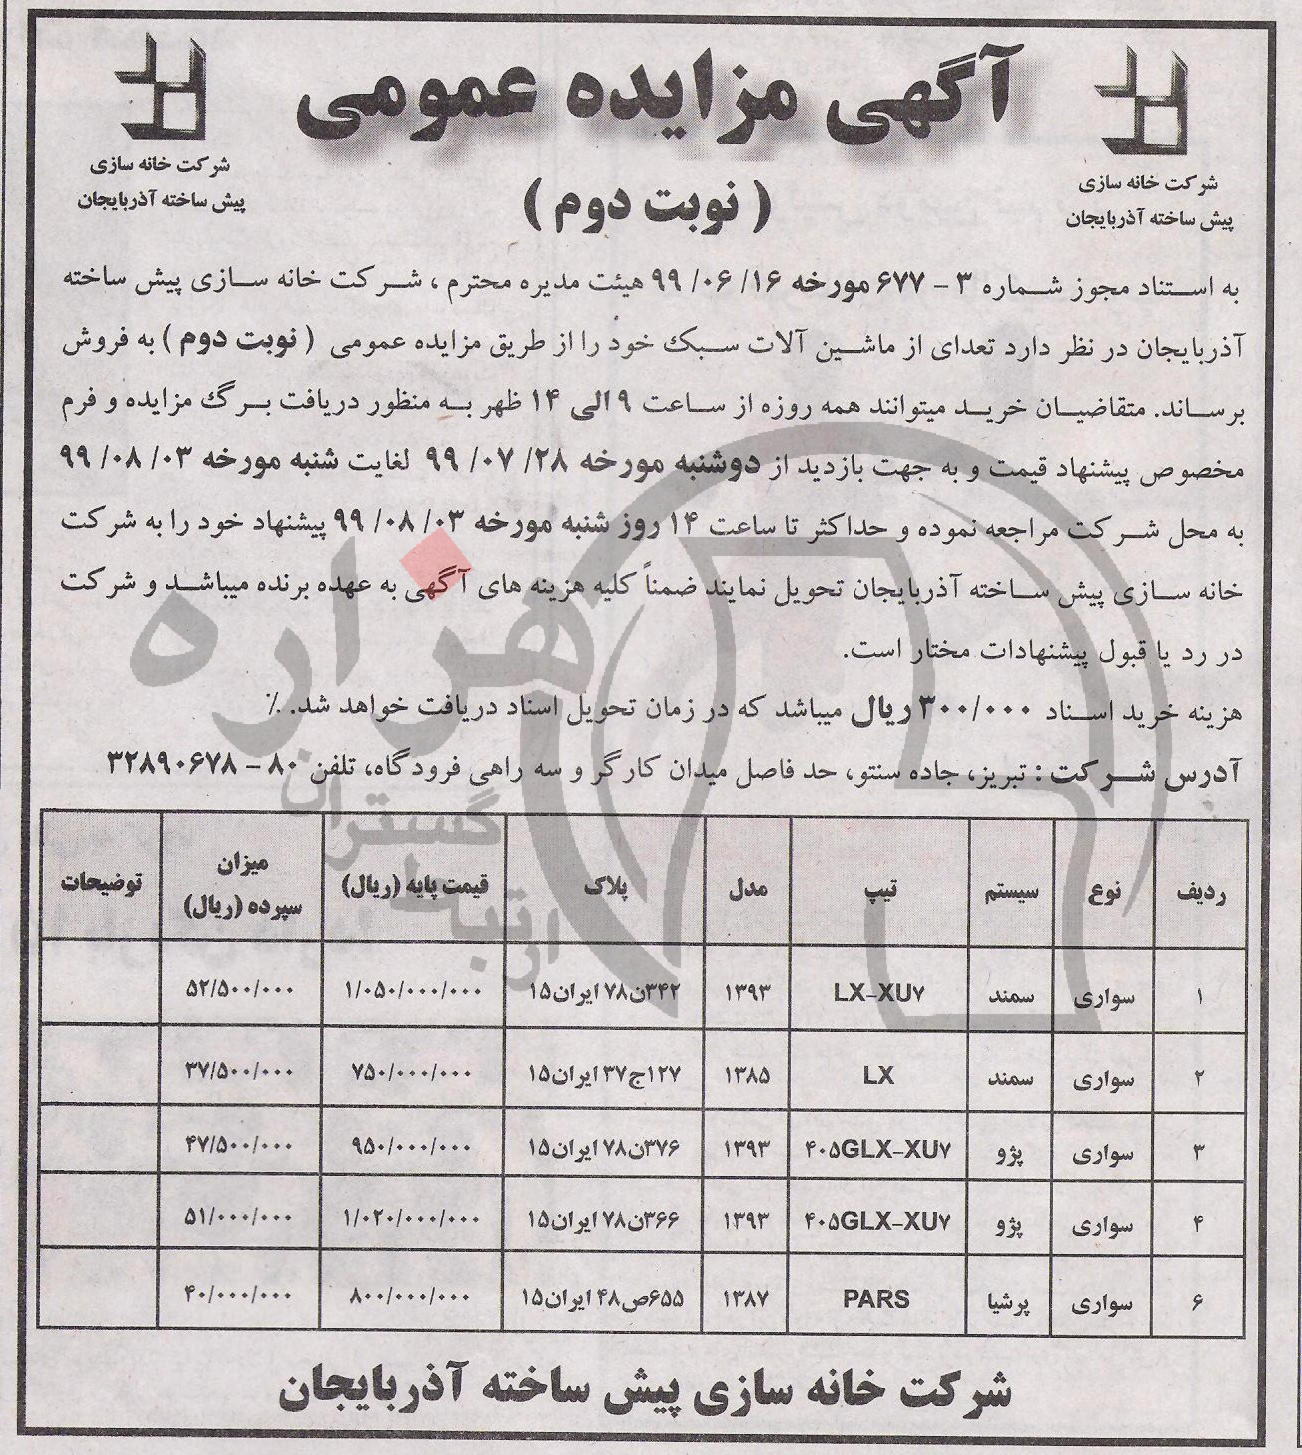 آگهی مزایده عمومی
( نوبت دوم )
شرکت خانه سازی
پیش ساخته آذربایجان
شرکت خانه سازی
پیش ساخته آذربایجان
به استناد مجوز شماره ۳ - ۶۷۷ مورخه ۱۶/ ۰۶/ ۹۹ هیئت مدیره محترم ، شرکت خانه سازی پیش ساخته
آذربایجان در نظر دارد تعدای از ماشین آلات سبک خود را از طریق مزایده عمومی ( نوبت دوم ) به فروش
برساند. متقاضیان خرید میتوانند همه روزه از ساعت ۹ الی ۱۴ ظهر به منظور دریافت برگ مزایده و فرم
مخصوص پیشنهاد قیمت و به جهت بازدید از دوشنبه مورخه ۲۸/ ۰۷/ ۹۹ لغایت شنبه مورخه ۰۳/ ۰۸/ ۹۹
به محل شرکت مراجعه نموده و حداکثر تا ساعت ۱۴ روز شنبه مورخه ۰۳/ ۰۸/ ۹۹ پیشنهاد خود را به شرکت
خانه سازی پیش ساخته آذربایجان تحویل نمایند ضمناً کلیه هزینه های آگهی به عهده برنده میباشد و شرکت
در رد یا قبول پیشنهادات مختار است.
هزینه خرید اسناد ۳۰۰/۰۰۰ ریال میباشد که در زمان تحویل اسناد دریافت خواهد شد. ٪
آدرس شرکت : تبریز، جاده سنتو، حد فاصل میدان کارگر و سه راهی فرودگاه، تلفن ۸۰ - ۳۲۸۹۰۶۷۸
ردیف نوع سیستم تیپ مدل پلاک قیمت پایه (ریال) میزان سپرده (ریال) توضیحات
۱ سواری سمند LX-XU۷ ۱۳۹۳ ۳۴۲ن۷۸ ایران۱۵ ۱/۰۵۰/۰۰۰/۰۰۰ ۵۲/۵۰۰/۰۰۰
۲ سواری سمند LX ۱۳۸۵ ۱۲۷ج۳۷ ایران۱۵ ۷۵۰/۰۰۰/۰۰۰ ۳۷/۵۰۰/۰۰۰
۳ سواری پژو ۴۰۵GLX-XU۷ ۱۳۹۳ ۳۷۶ن۷۸ ایران۱۵ ۹۵۰/۰۰۰/۰۰۰ ۴۷/۵۰۰/۰۰۰
۴ سواری پژو ۴۰۵GLX-XU۷ ۱۳۹۳ ۳۶۶ن۷۸ ایران۱۵ ۱/۰۲۰/۰۰۰/۰۰۰ ۵۱/۰۰۰/۰۰۰
۶ سواری پرشیا PARS ۱۳۸۷ ۶۵۵ص۴۸ ایران۱۵ ۸۰۰/۰۰۰/۰۰۰ ۴۰/۰۰۰/۰۰۰
شرکت خانه سازی پیش ساخته آذربایجان
هزاره
گستران
ارتباط